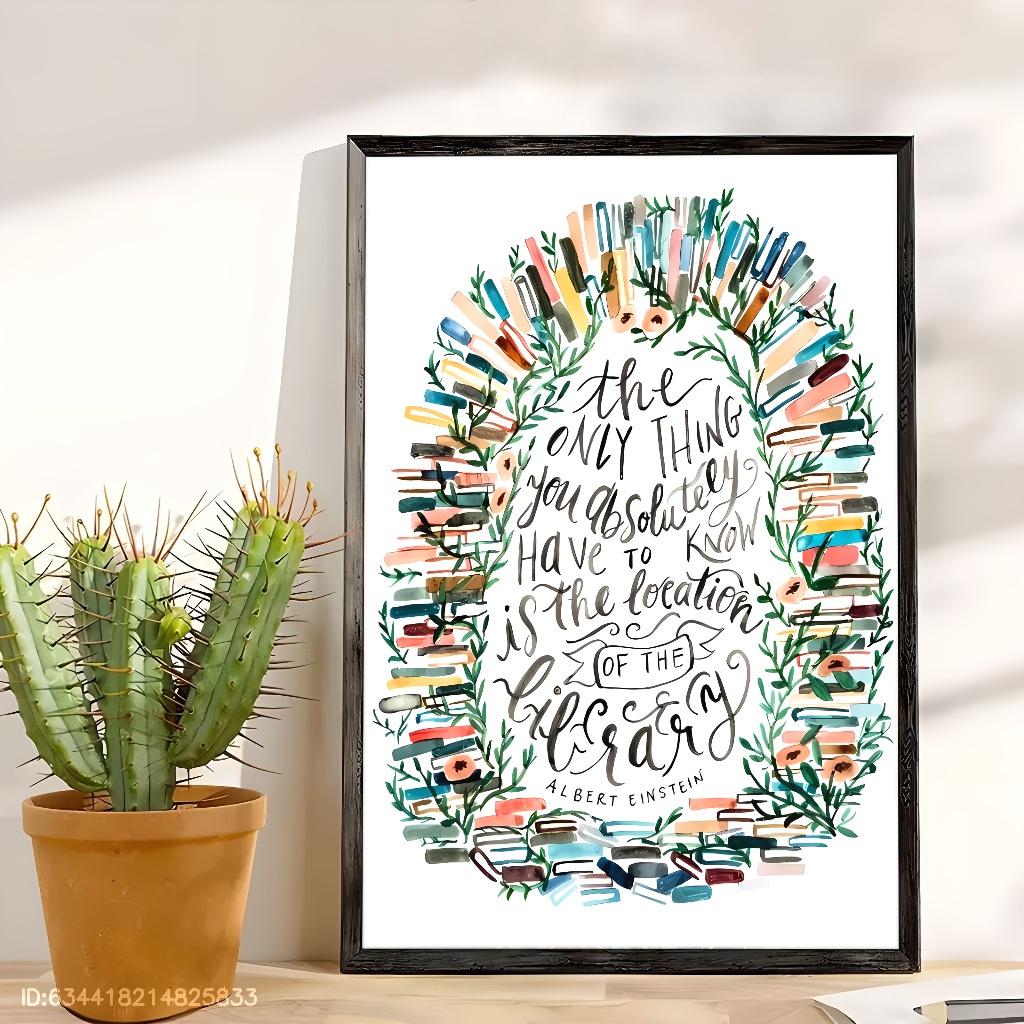 the
ONLY THING
you absolutely
HAVE TO KNOW
is the location
OF THE
library
ALBERT EINSTEIN
ID:634418214825833